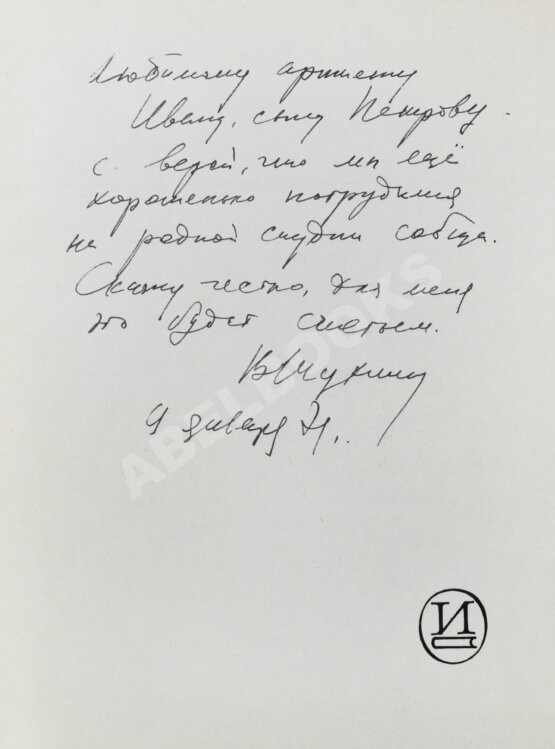 Любимому артисту
Ивану, сыну Петрову
с верой, что мы ещё
хорошенько потрудимся
на родной студии сообща.
Скажу честно, для меня
это будет счастьем.
ВШукшин
9 января 71.
ABELEBOOKS
И